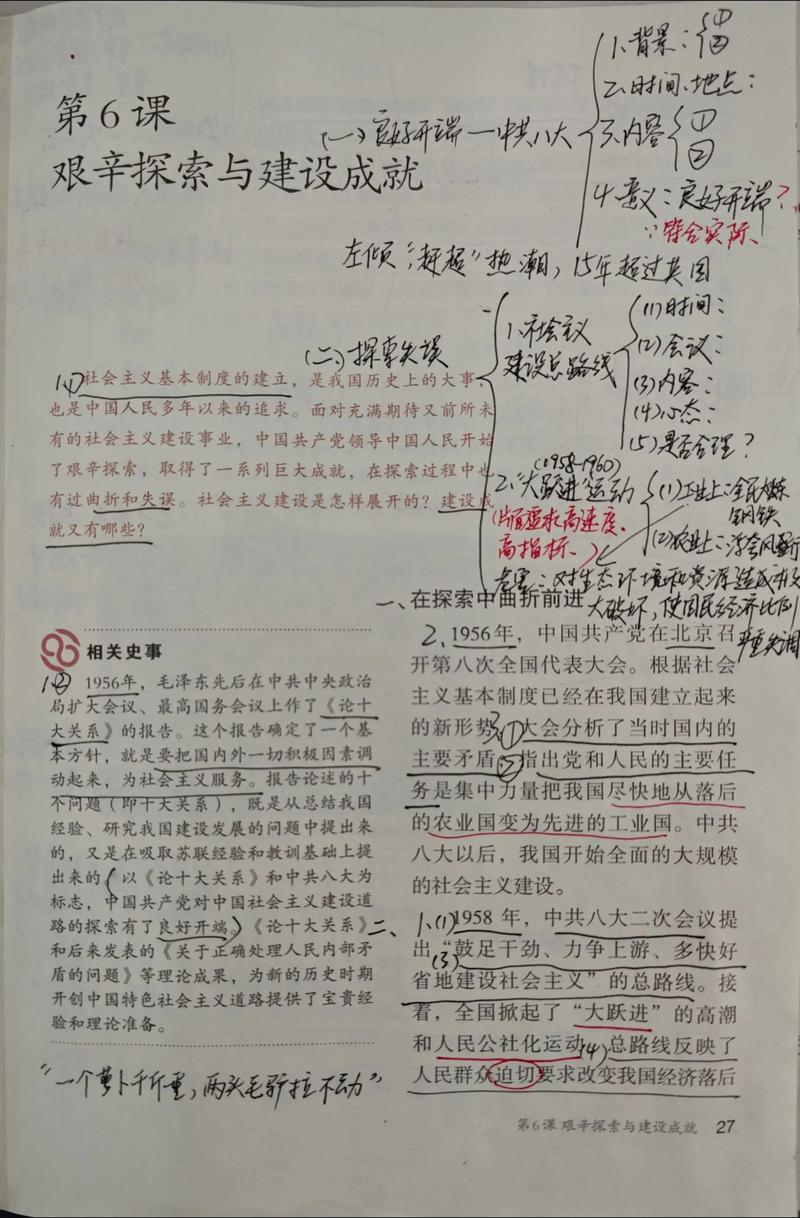 第6课
艰辛探索与建设成就
(一)良好开端—中共八大
1、背景：①②
2、时间、地点：
3、内容 ① ②
4、意义：良好开端？
∵符合实际、
左倾“赶超”热潮，15年超过英国
(二)探索失误
1、社会主义
建设总路线
(1)时间：
(2)会议：
(3)内容：
(4)心态：
(5)是否合理？
(1958-1960)
2、“大跃进”运动
(片面要求高速度、
高指标、)
(1)工业上：全民大炼
钢铁
(2)农业上：浮夸风盛行
危害：对生态环境和资源造成极
大破坏，使国民经济比例
严重失调
1、①社会主义基本制度的建立，是我国历史上的大事，
也是中国人民多年以来的追求。面对充满期待又前所未
有的社会主义建设事业，中国共产党领导中国人民开始
了艰辛探索，取得了一系列巨大成就，在探索过程中也
有过曲折和失误。社会主义建设是怎样展开的？建设成
就又有哪些？
相关史事
1、② 1956年，毛泽东先后在中共中央政治
局扩大会议、最高国务会议上作了《论十
大关系》的报告。这个报告确定了一个基
本方针，就是要把国内外一切积极因素调
动起来，为社会主义服务。报告论述的十
个问题（即十大关系），既是从总结我国
经验、研究我国建设发展的问题中提出来
的，又是在吸取苏联经验和教训基础上提
出来的。以《论十大关系》和中共八大为
标志，中国共产党对中国社会主义建设道
路的探索有了良好开端。《论十大关系》
和后来发表的《关于正确处理人民内部矛
盾的问题》等理论成果，为新的历史时期
开创中国特色社会主义道路提供了宝贵经
验和理论准备。
“一个萝卜千斤重，两头毛驴拉不动”
一、在探索中曲折前进
2、1956年，中国共产党在北京召
开第八次全国代表大会。根据社会
主义基本制度已经在我国建立起来
的新形势，3、①大会分析了当时国内的
主要矛盾，②指出党和人民的主要任
务是集中力量把我国尽快地从落后
的农业国变为先进的工业国。中共
八大以后，我国开始全面的大规模
的社会主义建设。
二、1、(1)1958年，中共八大二次会议提
出(3)“鼓足干劲、力争上游、多快好
省地建设社会主义”的总路线。接
着，全国掀起了“大跃进”的高潮
和人民公社化运动。(4)总路线反映了
人民群众迫切要求改变我国经济落后
第6课 艰辛探索与建设成就 27